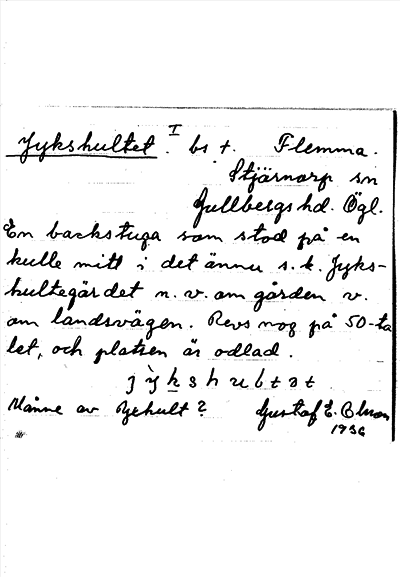 Jykshultet I. bs †. Flemma.
Stjärnorp sn
Gullbergs hd. Ögl.
En backstuga som stod på en
kulle mitt i det ännu s. k. Jyks-
hultegärdet n. v. om gården v.
om landsvägen. Revs nog på 50-ta
let, och platsen är odlad.
j ỳ k s h u l t ə t
Månne av Gjehult? Gustaf E. Olson
1936